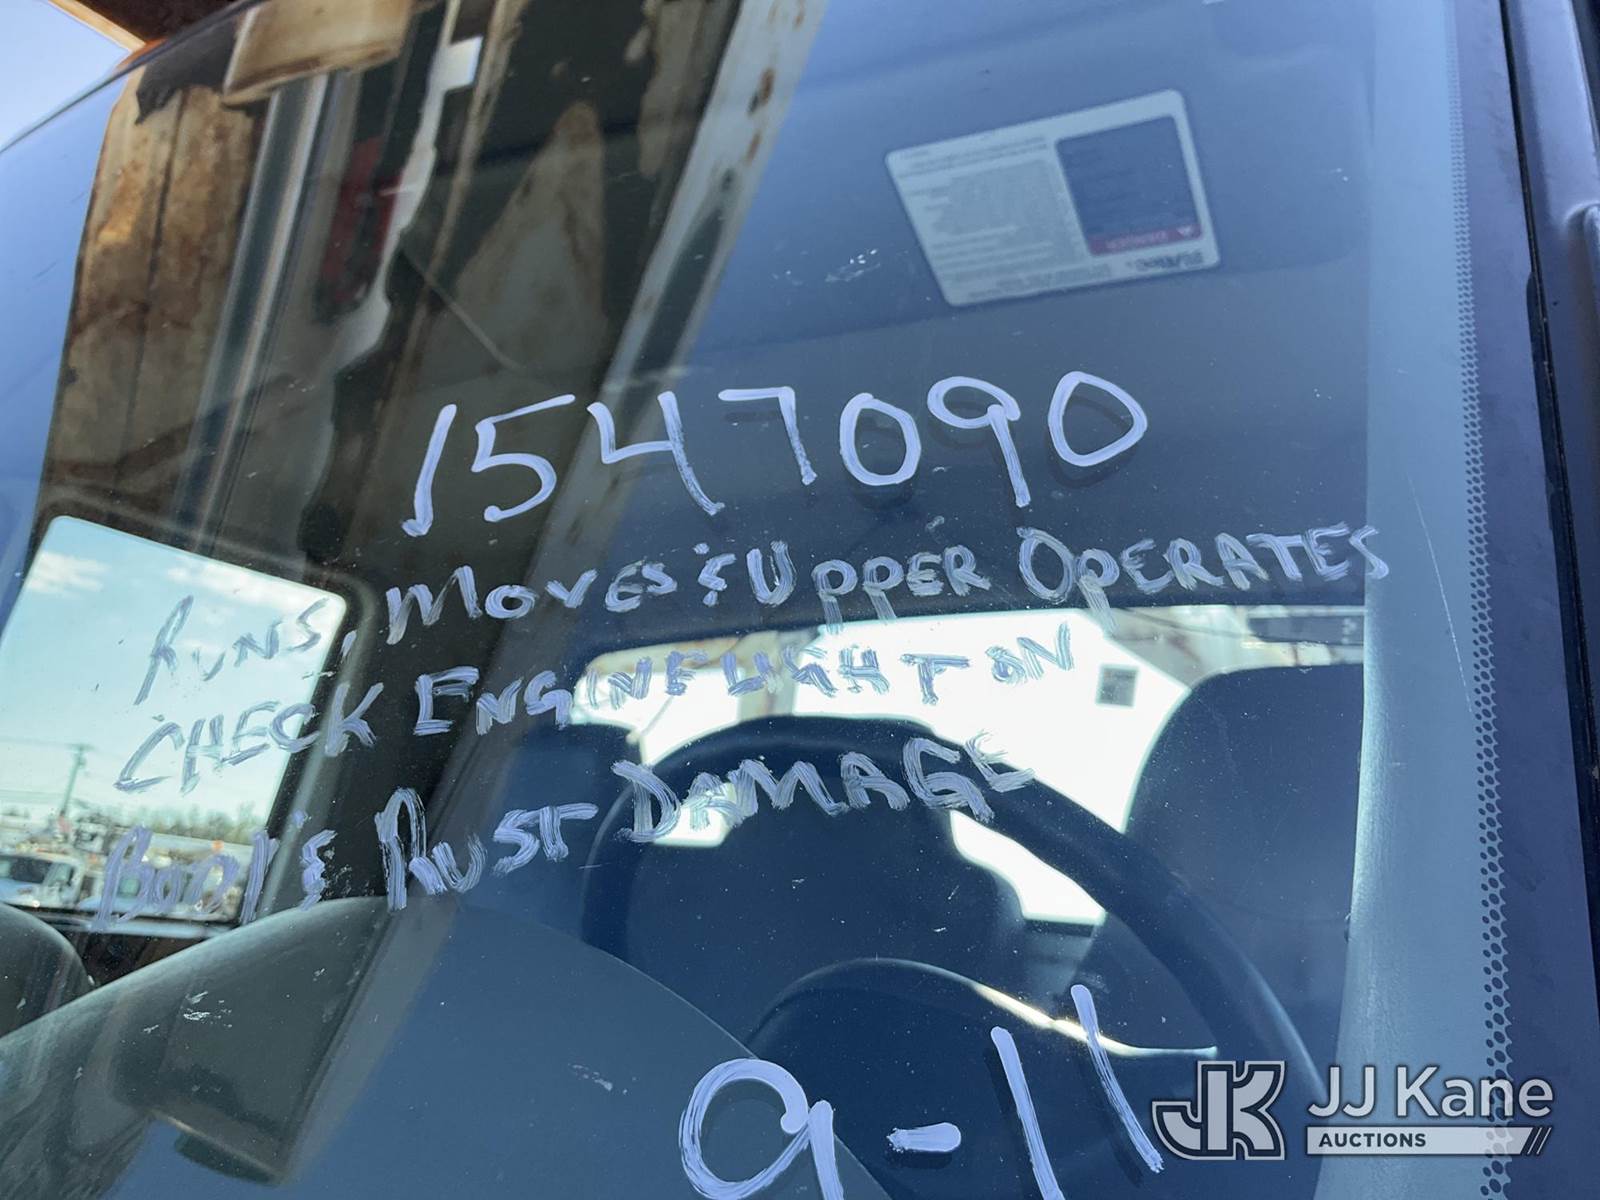 DANGER
Altec
1547090
RUNS, MOVES & UPPER OPERATES
CHECK ENGINE LIGHT ON
BODY & RUST DAMAGE
9-11
JK JJ Kane
AUCTIONS